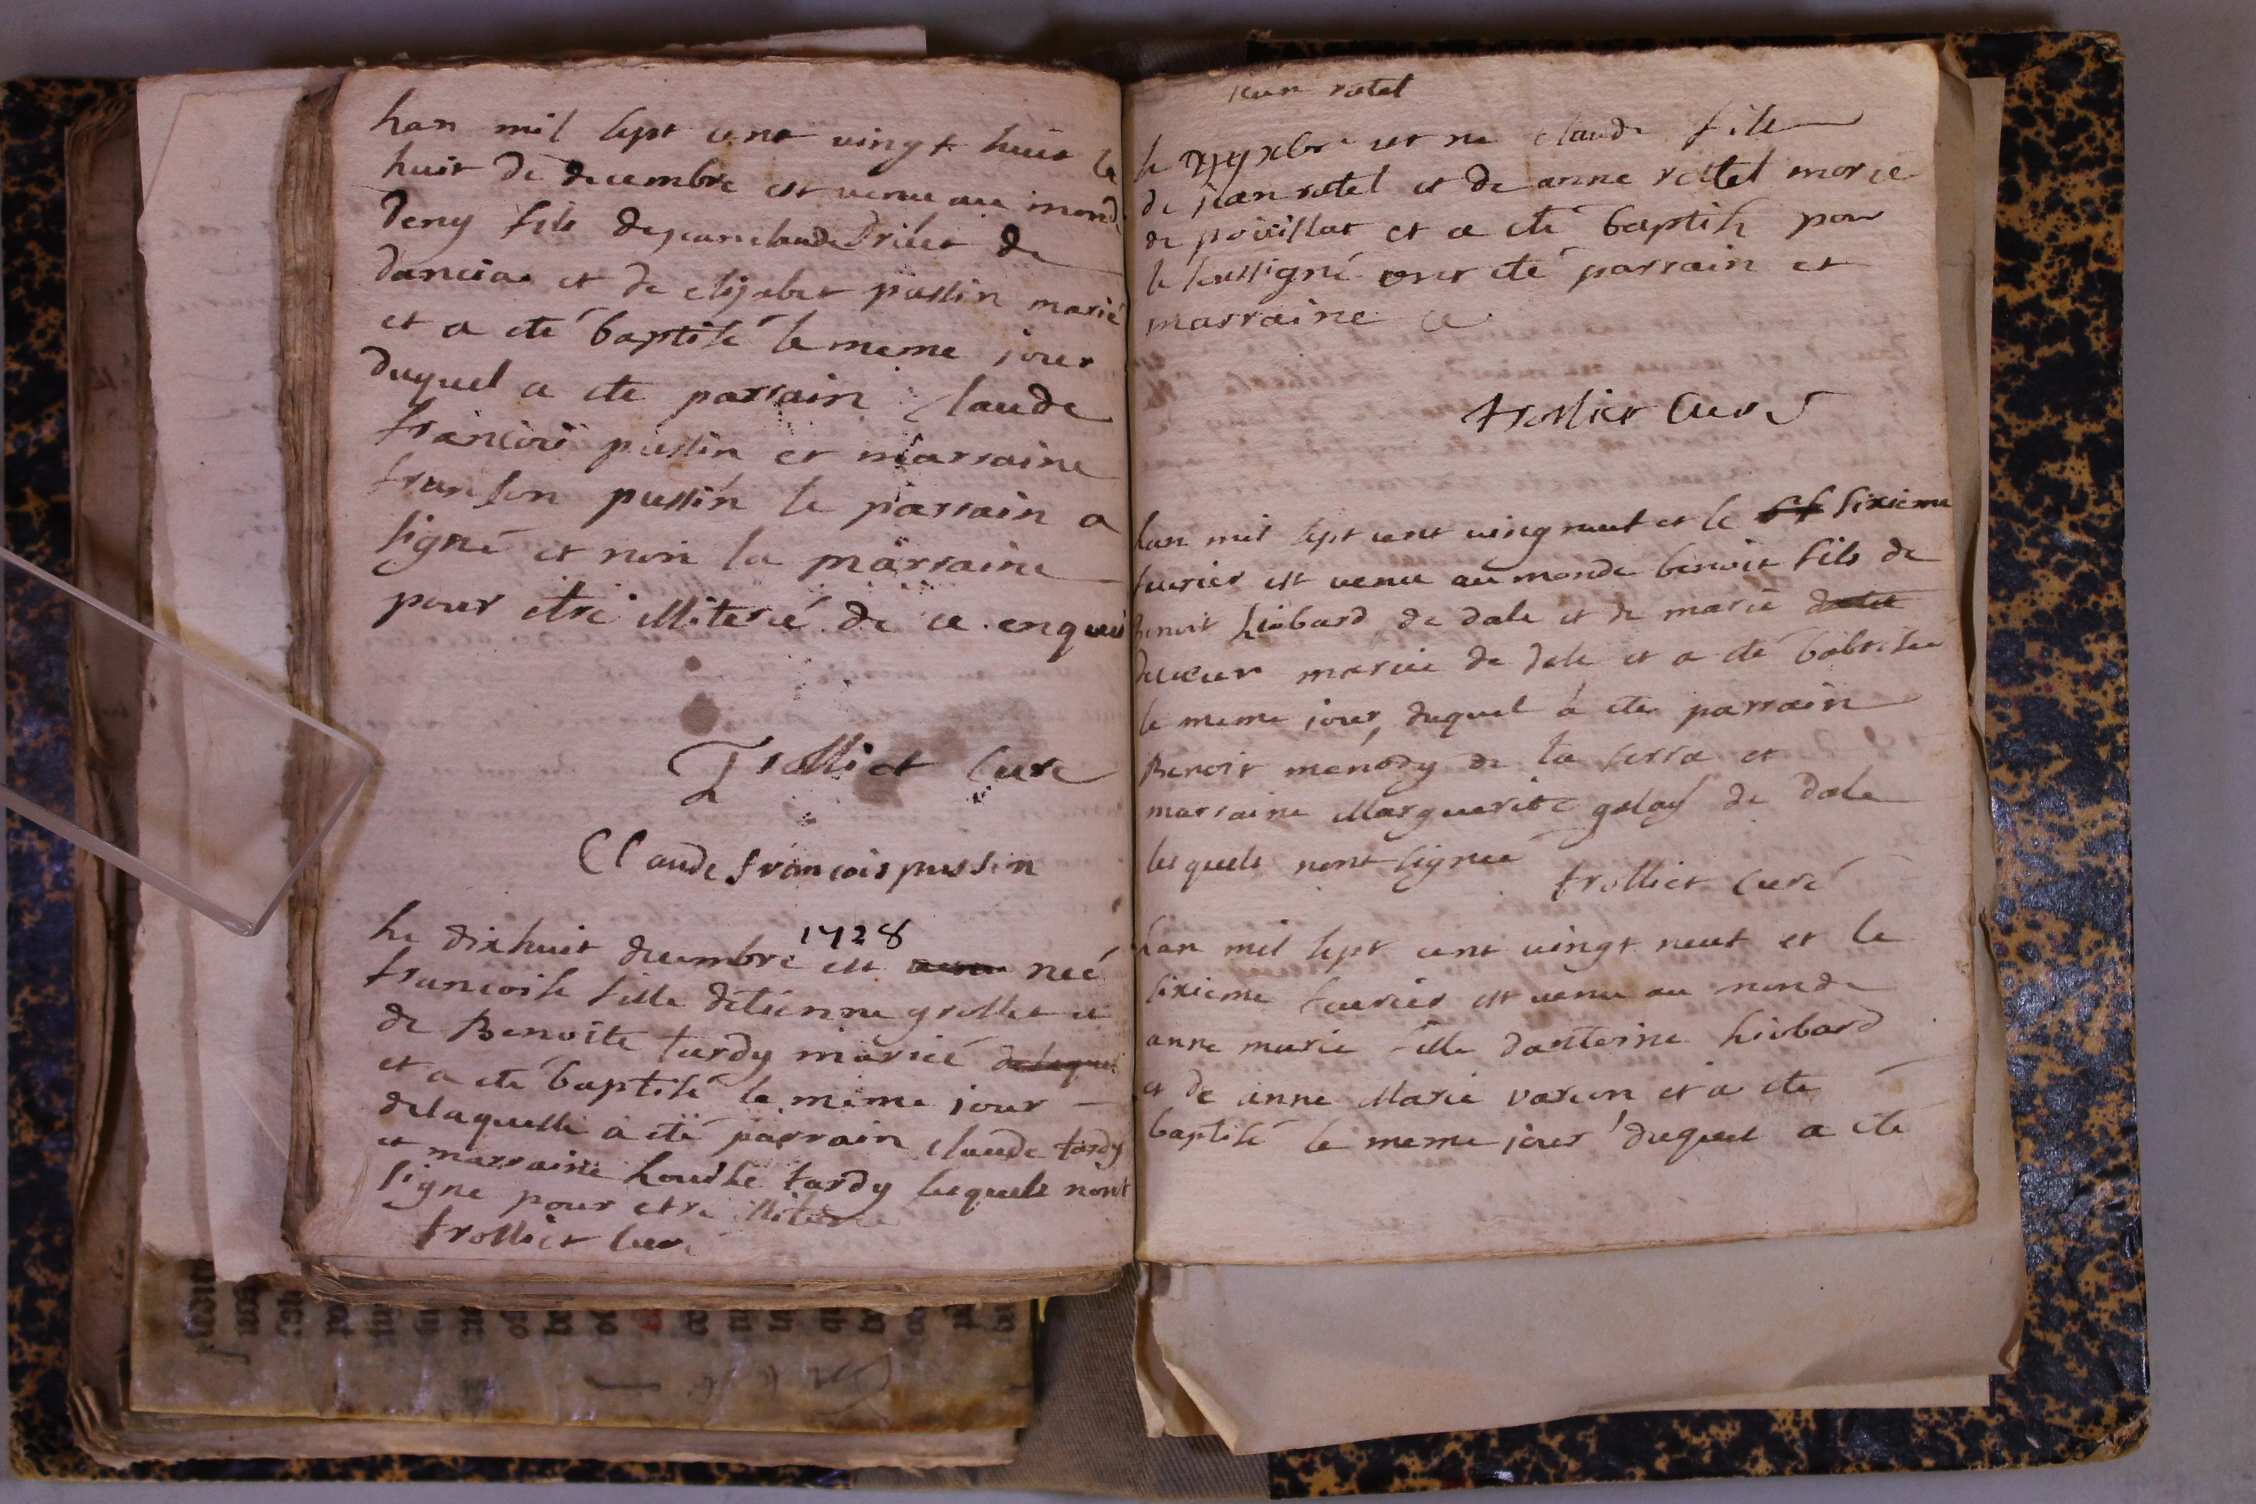 Lan mil sept cent vingt huit le
huit de decembre est venu au monde
Deny fils de jean claude Drilet de
dancia et de elizabet pussin marié
et a eté baptisé le meme jour
duquel a ete parrain Claude
francois pussin et marraine
franson pussin le parrain a
signé et non la marraine
pour etre illiteré de ce enquis
Trolliet Curé
Claude francois pussin
Le dixhuit decembre 1728 est neé
francoise fille detienne grollet et
de Benoite tardy marieé
et a eté baptisé le meme jour
delaquelle a eté parrain claude tardy
et marraine Louise tardy lesquels nont
signe pour etre illiteré
trolliet Curé
jean rotel
le xbre est ne claude fils
de jean rotel et de anne rottel marié
de pouillat et a eté baptisé par
le soussigné ont eté parrain et
marraine ce
trolliet Curé
Lan mil sept cent ving neuf et le sixieme
feurier est venu au monde benoit fils de
Benoit hiobard de dale et de marie
marieé de dale et a eté babtiseé
le meme jour, duquel a ete parrain
Benoit menody de la serra et
marraine Marguerite de dale
lesquels nont signeé
trolliet Curé
Lan mil sept cent vingt neuf et le
sixieme feurier est venu au monde
anne marie fille dantoine hiobard
et de anne Marie varion et a ete
baptisé le meme jour duquel a eté